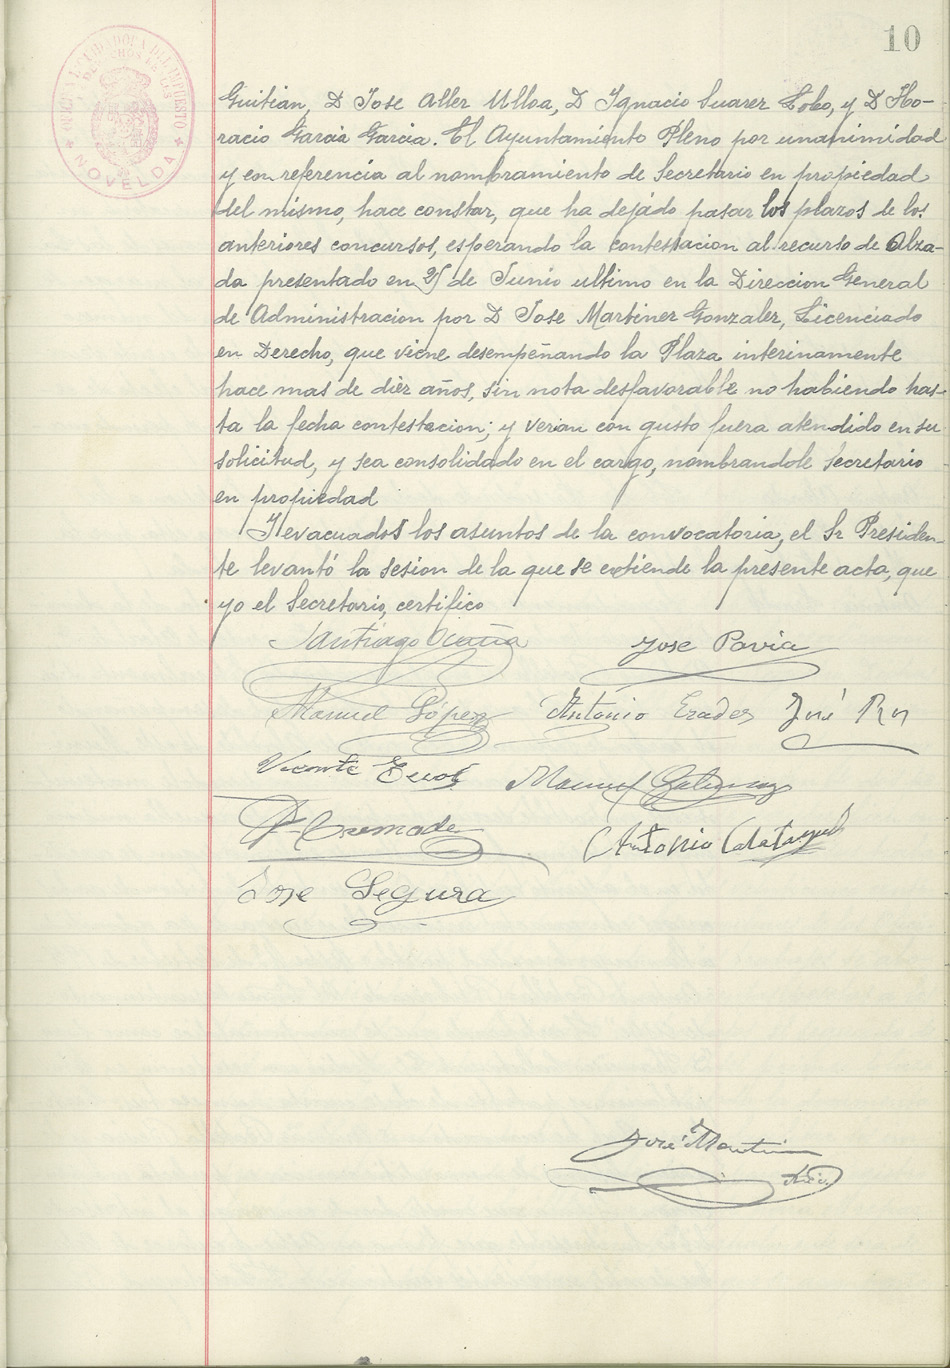 10
OFICINA LIQUIDADORA DEL IMPUESTO
DE DERECHOS REALES
NOVELDA
Guitian, D Jose Aller Ulloa, D Ignacio Suarez Lobo, y D Ho-
racio Garcia Garcia. El Ayuntamiento Pleno por unanimidad
y en referencia al nombramiento de Secretario en propiedad
del mismo, hace constar, que ha dejado pasar los plazos de los
anteriores concursos, esperando la contestacion al recurso de Alza-
da presentado en de Junio ultimo en la Direccion General
de Administracion por D Jose Martinez Gonzalez, Licenciado
en Derecho, que viene desempeñando la Plaza interinamente
hace mas de diez años, sin nota desfavorable no habiendo has-
ta la fecha contestacion; y verian con gusto fuera atendido en su
solicitud, y sea consolidado en el cargo, nombrandole Secretario
en propiedad
Y evacuados los asuntos de la convocatoria, el Sr Presiden-
te levantó la sesion de la que se extiende la presente acta, que
yo el Secretario, certifico
Santiago Ocaña Jose Pavia
Manuel López Antonio José
Vicente Manuel
Cremades Antonio Calatayud
Jose Segura
José Martinez